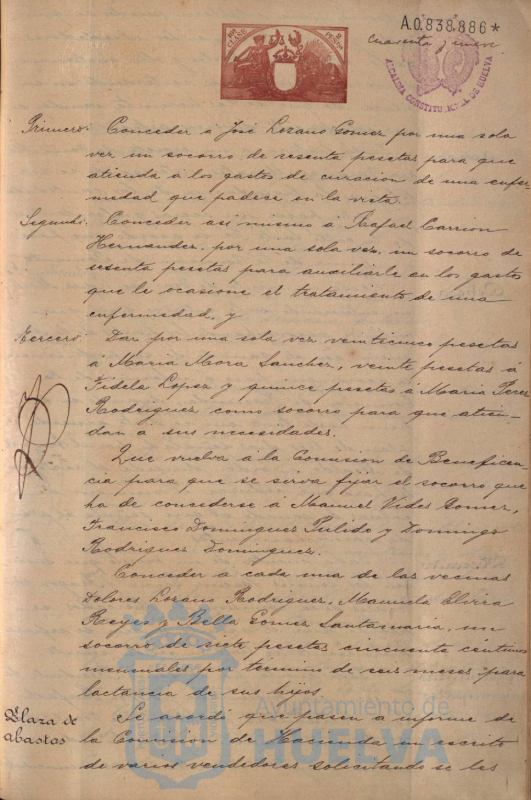 10ª CLASE
2 PESETAS
A.0.838.886*
cuarenta y nueve
ALCALDIA CONSTITUCIONAL DE HUELVA
Primero: Conceder á José Lozano Gomez por una sola
vez un socorro de sesenta pesetas para que
atienda á los gastos de curacion de una enfer
medad que padece en la vista.
Segundo: Conceder asi mismo á Rafael Carrion
Hernandez, por una sola vez, un socorro de
sesenta pesetas para auxiliarle en los gastos
que le ocasione el tratamiento de una
enfermedad, y
Tercero: Dar por una sola vez veinticinco pesetas
á Maria Mora Sanchez, veinte pesetas á
Fidela Lopez y quince pesetas á Maria Perez
Rodriguez como socorro para que atien-
dan a sus necesidades.
Que vuelva á la Comision de Beneficen-
cia para que se sirva fijar el socorro que
ha de concederse á Manuel Vides Gomez,
Francisco Dominguez Pulido y Domingo
Rodriguez Dominguez.
Conceder á cada una de las vecinas
Dolores Lozano Rodriguez, Manuela Elvira
Reyes y Bella Gomez Santamaria, un
socorro de siete pesetas cincuenta centimos
mensuales por termino de seis meses para
lactancia de sus hijos.
Plaza de
abastos
Se acordó que pasen a informe de
la Comision de Hacienda un escrito
de varios vendedores solicitando se les
Ayuntamiento de
HUELVA